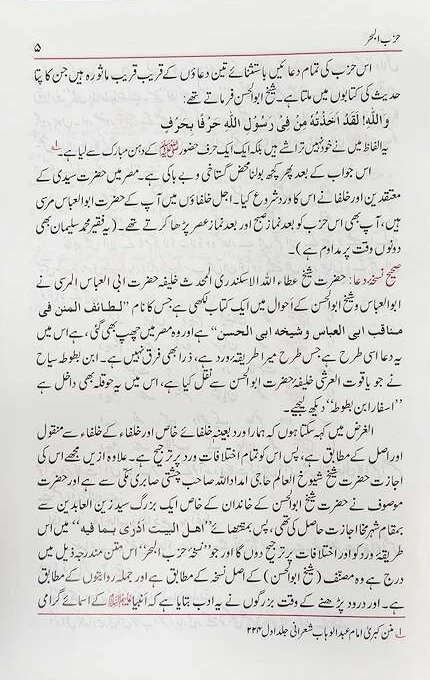 حزب البحر
۵
اس حزب کی تمام دعائیں باستثنائے تین دعاؤں کے قریب قریب ماثورہ ہیں جن کا پتا
حدیث کی کتابوں میں ملتا ہے۔ شیخ ابوالحسن فرماتے تھے:
وَاللّٰهِ! لَقَدْ اَخَذْتُهُ مِنْ فِیْ رَسُوْلِ اللّٰهِ حَرْفًا بِحَرْفٍ
یہ الفاظ میں نے خود نہیں تراشے ہیں بلکہ ایک ایک حرف حضور ﷺ کے دہن مبارک سے لیا ہے۔ ۱؎
اس جواب کے بعد پھر کچھ بولنا محض گستاخی و بے باکی ہے۔ مصر میں حضرت سیدی کے
معتقدین اور خلفا نے اس کا ورد شروع کیا۔ اجل خلفاؤں میں آپ کے حضرت ابوالعباس مرسی
ہیں، آپ بھی اس حزب کو بعد نماز صبح اور بعد نماز عصر پڑھا کرتے تھے۔ (یہ فقیر محمد سلیمان بھی
دونوں وقت پر مداوم ہے)۔
صحیح نسخہ دعا: حضرت شیخ عطاء اللہ الاسکندری المحدث خلیفہ حضرت ابی العباس المرسی نے
ابوالعباس و شیخ ابوالحسن کے احوال میں ایک کتاب لکھی ہے جس کا نام ”لطائف المنن فی
مناقب ابی العباس وشیخه ابی الحسن“ ہے اور وہ مصر میں چھپ بھی گئی، ہے اس میں
یہ دعا اسی طرح ہے جس طرح میرا طریقہ ورد ہے، ذرا بھی فرق نہیں ہے۔ ابن بطوطہ سیاح
نے جو یاقوت العرشی خلیفۂ حضرت ابوالحسن سے نقل کیا ہے، اس میں یہ حوقلہ بھی داخل ہے
”اسفار ابن بطوطہ“ دیکھ لیجیے۔
الغرض میں کہہ سکتا ہوں کہ ہمارا ورد بعینہ خلفائے خاص اور خلفاء کے خلفاء سے منقول
اور اصل کے مطابق ہے، پس اس کو تمام اختلافات ورد پر ترجیح ہے۔ علاوہ ازیں مجھے اس کی
اجازت حضرت شیخ شیوخ العالم حاجی امداد اللہ صاحب چشتی صابری مکی سے ہے اور حضرت
موصوف نے حضرت شیخ ابوالحسن کے خاندان کے خاص ایک بزرگ سید زین العابدین سے
بمقام شہر مخا اجازت حاصل کی تھی، پس بمقتضائے ”اهل البیت أدری بما فیه“ میں اس
طریقۂ ورد کو اور اختلافات پر ترجیح دوں گا اور جو ”نسخۂ حزب البحر“ اس متن مندرجہ ذیل میں
درج ہے وہ مصنّف (شیخ ابوالحسن) کے اصل نسخہ کے مطابق ہے اور جملہ روایتوں کے مطابق
ہے۔ اور درود پڑھنے کے وقت بزرگوں نے یہ ادب بتایا ہے کہ انبیا علیہم السلام کے اسمائے گرامی
۱؎ منن کبریٰ امام عبدالوہاب شعرانی جلد اول ۲۲۴